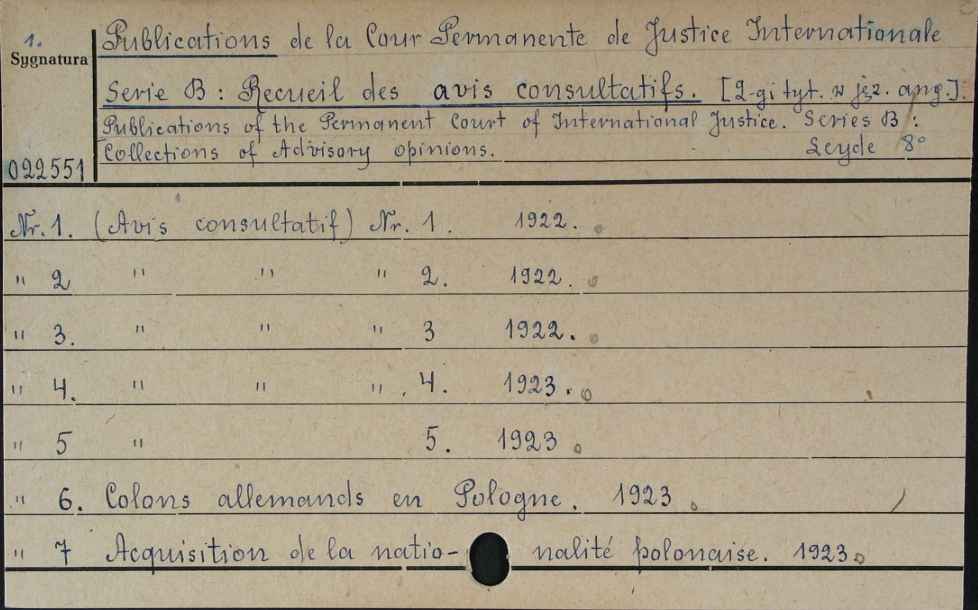 1.
Sygnatura
Publications de la Cour Permanente de Justice Internationale
Serie B : Recueil des avis consultatifs. [2-gi tyt. w jęz. ang.]:
Publications of the Permanent Court of International Justice. Series B :
Collections of Advisory opinions. Leyde 8°
022551
Nr. 1. (Avis consultatif) Nr. 1. 1922.
" 2 " " " 2. 1922.
" 3. " " " 3 1922.
" 4. " " " 4. 1923.
" 5 " 5. 1923
" 6. Colons allemands en Pologne. 1923
" 7 Acquisition de la natio- nalité polonaise. 1923